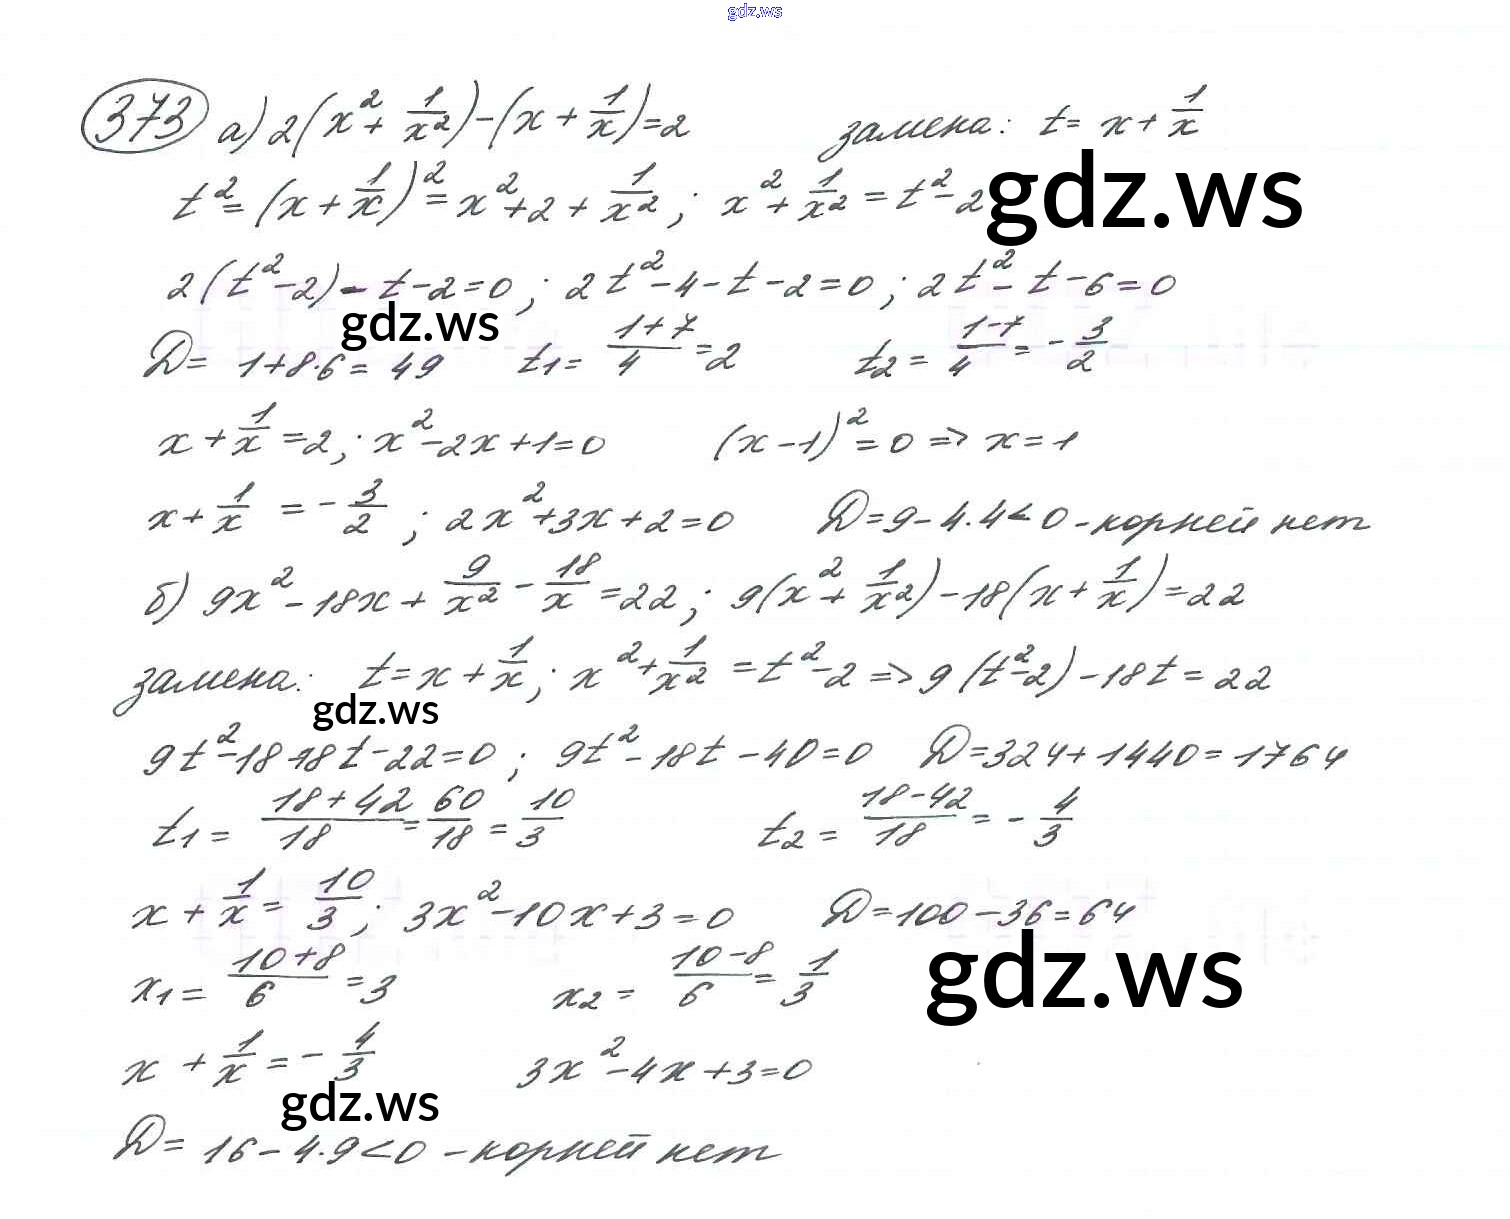 gdz.ws
373 а) 2(x² + 1/x²) − (x + 1/x) = 2 замена: t = x + 1/x
t² = (x + 1/x)² = x² + 2 + 1/x² ; x² + 1/x² = t² − 2 gdz.ws
2(t² − 2) − t − 2 = 0 ; 2t² − 4 − t − 2 = 0 ; 2t² − t − 6 = 0
gdz.ws
D = 1 + 8·6 = 49 t₁ = (1+7)/4 = 2 t₂ = (1−7)/4 = −3/2
x + 1/x = 2 ; x² − 2x + 1 = 0 (x − 1)² = 0 => x = 1
x + 1/x = −3/2 ; 2x² + 3x + 2 = 0 D = 9 − 4·4 < 0 − корней нет
б) 9x² − 18x + 9/x² − 18/x = 22 ; 9(x² + 1/x²) − 18(x + 1/x) = 22
замена: t = x + 1/x ; x² + 1/x² = t² − 2 => 9(t² − 2) − 18t = 22
gdz.ws
9t² − 18 − 18t − 22 = 0 ; 9t² − 18t − 40 = 0 D = 324 + 1440 = 1764
t₁ = (18+42)/18 = 60/18 = 10/3 t₂ = (18−42)/18 = −4/3
x + 1/x = 10/3 ; 3x² − 10x + 3 = 0 D = 100 − 36 = 64
x₁ = (10+8)/6 = 3 x₂ = (10−8)/6 = 1/3 gdz.ws
x + 1/x = −4/3 3x² − 4x + 3 = 0
gdz.ws
D = 16 − 4·9 < 0 − корней нет